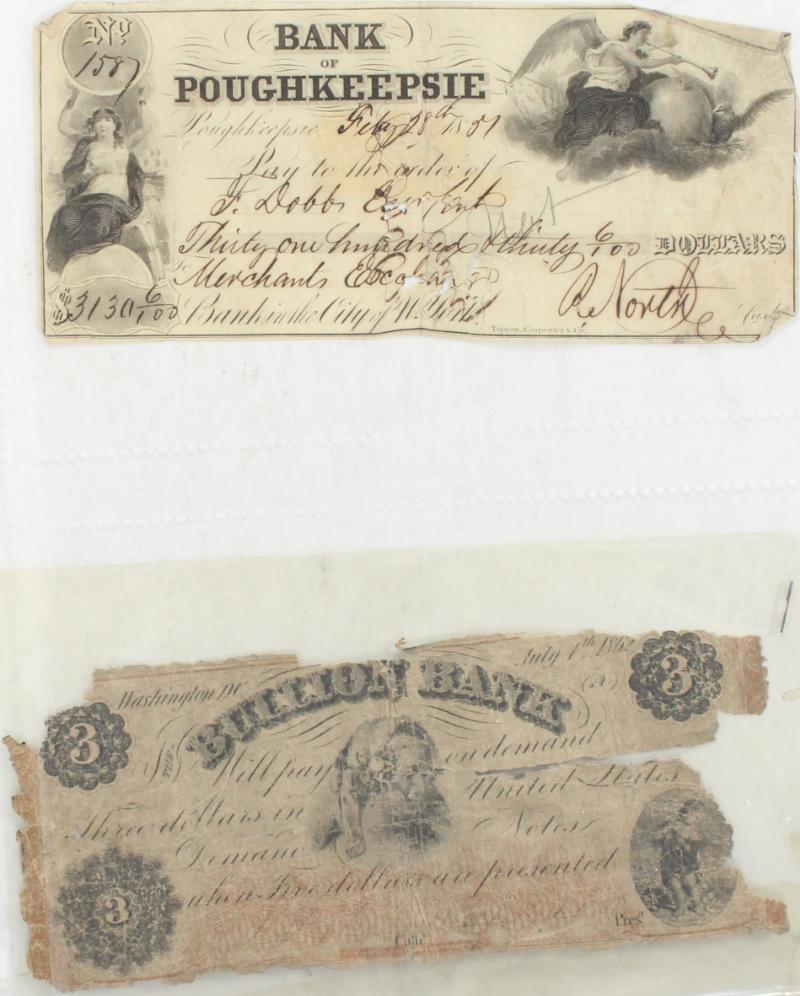 No
1587
BANK
OF
POUGHKEEPSIE
Poughkeepsie Feby 28th 1851
Pay to the order of
F. Dobbs
Thirty one hundred & thirty 6/100 DOLLARS
To Merchants Exchange
$3130 6/100 Bank in the City of N. York
R. North Cash
Toppan, Carpenter & Co.
July 1th 1862
Washington DC
(A)
3
3
THE BULLION BANK
Will pay on demand
Three dollars in United States
Demand Notes
when Five dollars are presented
3
Cash
Pres